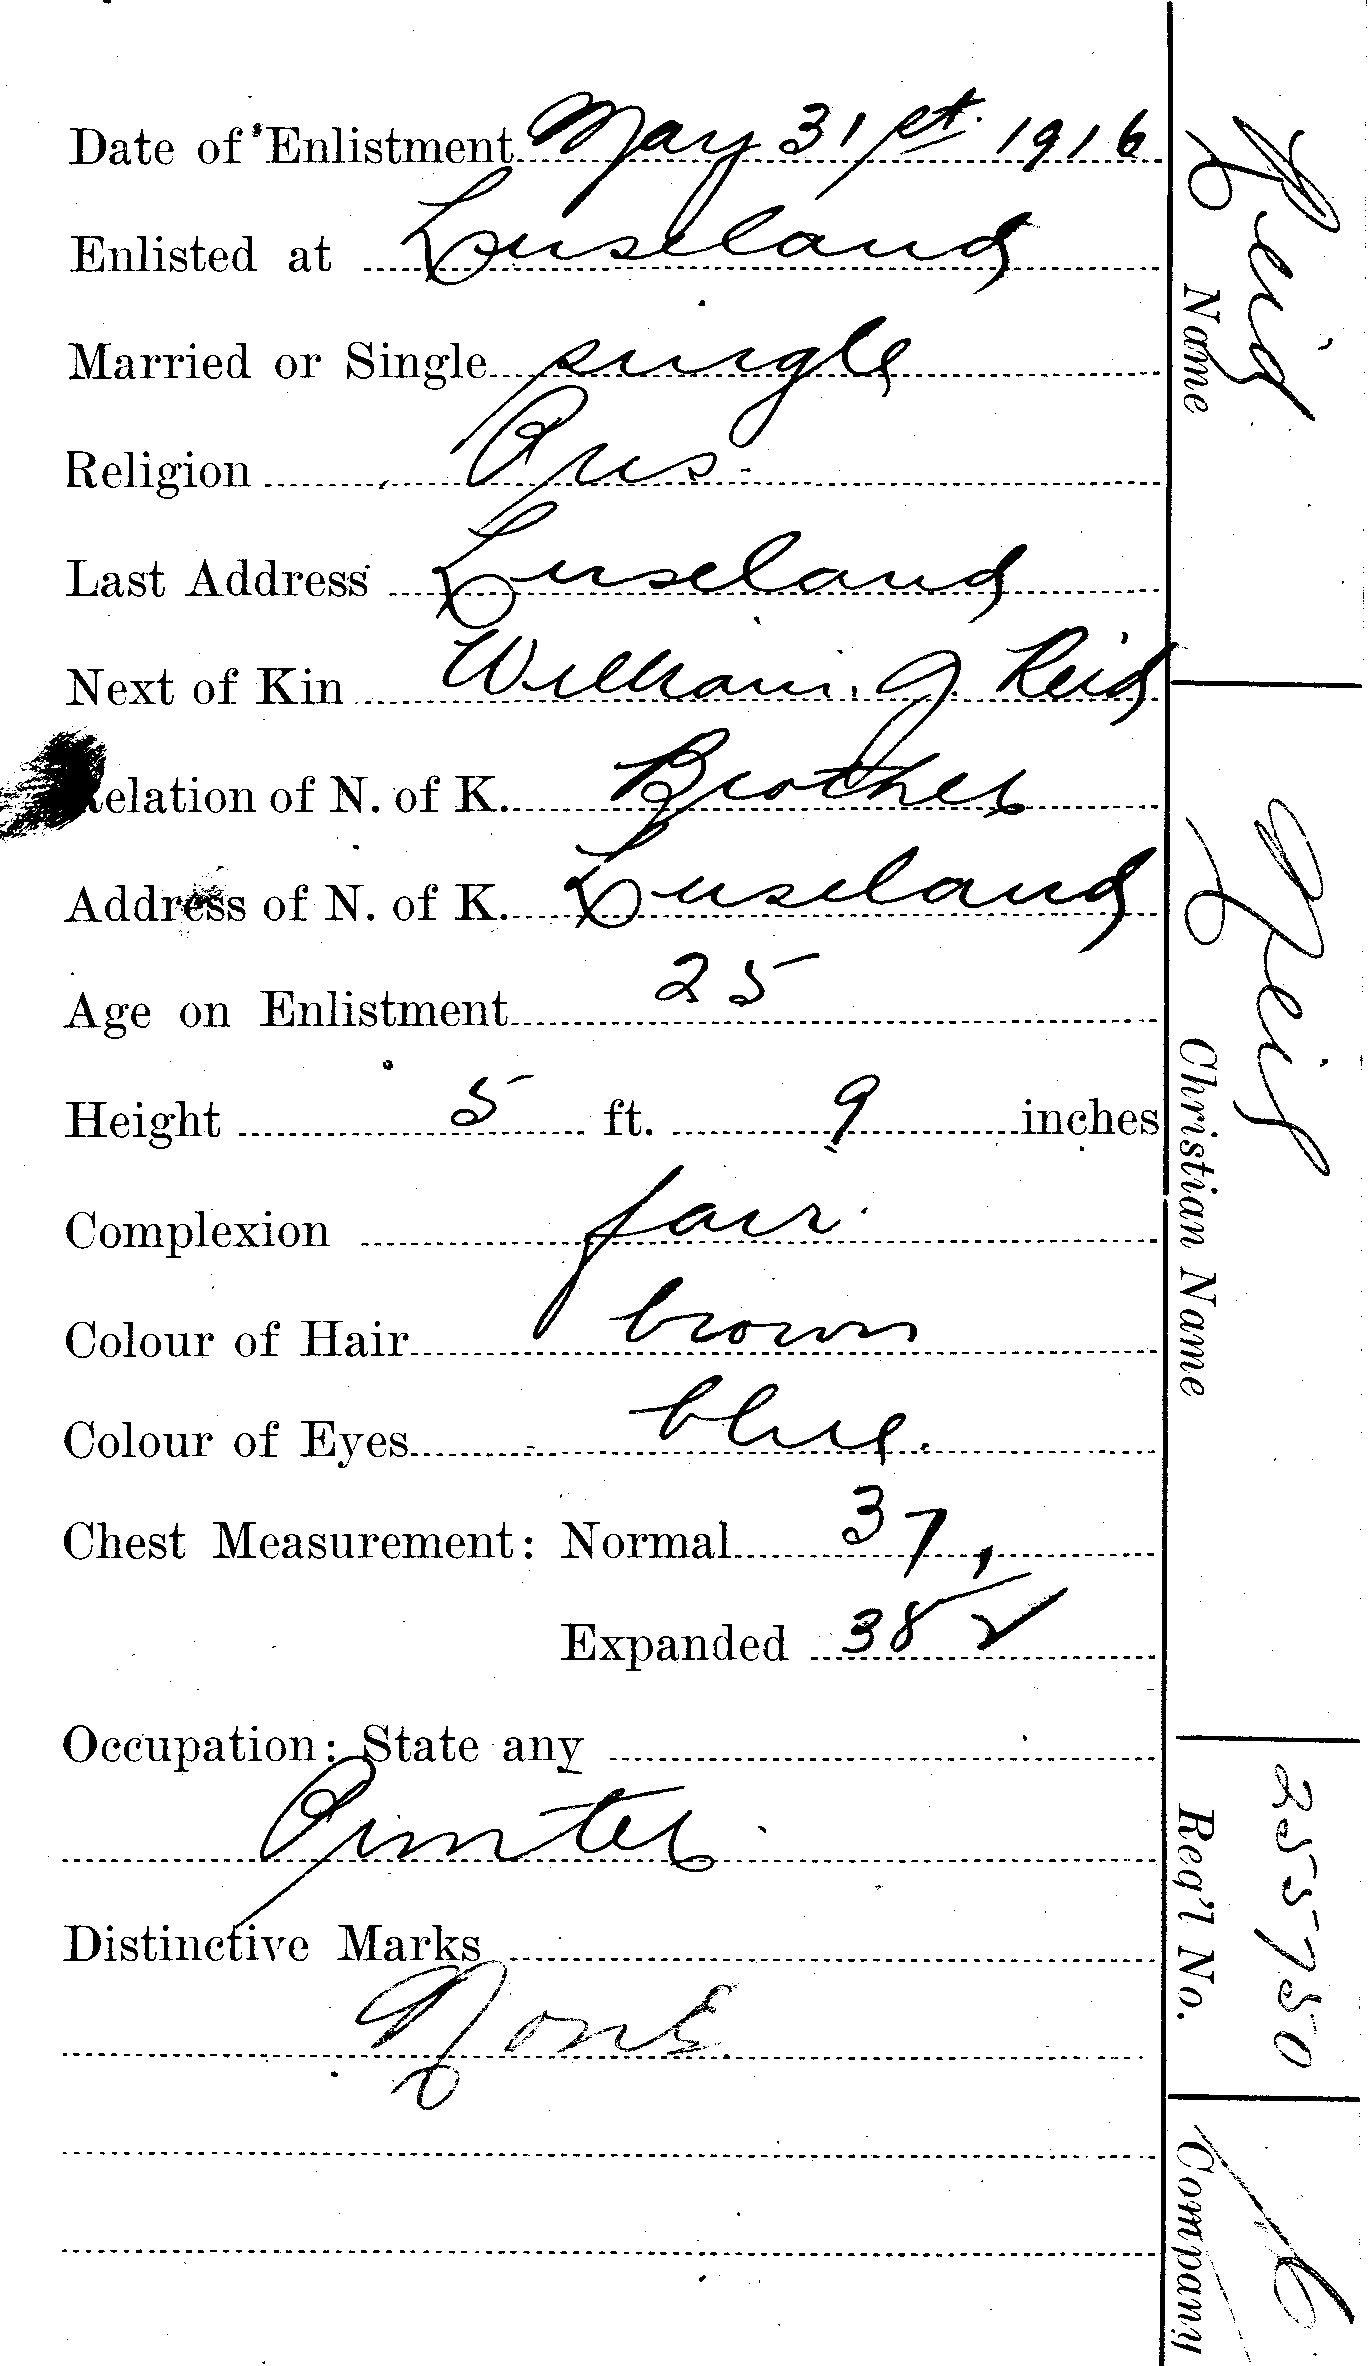 Date of Enlistment May 31st. 1916
Enlisted at Luseland
Married or Single single
Religion Pres.
Last Address Luseland
Next of Kin William J. Reid
Relation of N. of K. Brother
Address of N. of K. Luseland
Age on Enlistment 25
Height 5 ft. 9 inches
Complexion fair.
Colour of Hair brown
Colour of Eyes blue.
Chest Measurement: Normal 37
Expanded 38 1/2
Occupation: State any
Printer.
Distinctive Marks
None
Reid
Name
Neil
Christian Name
255750
Reg'l No.
Company